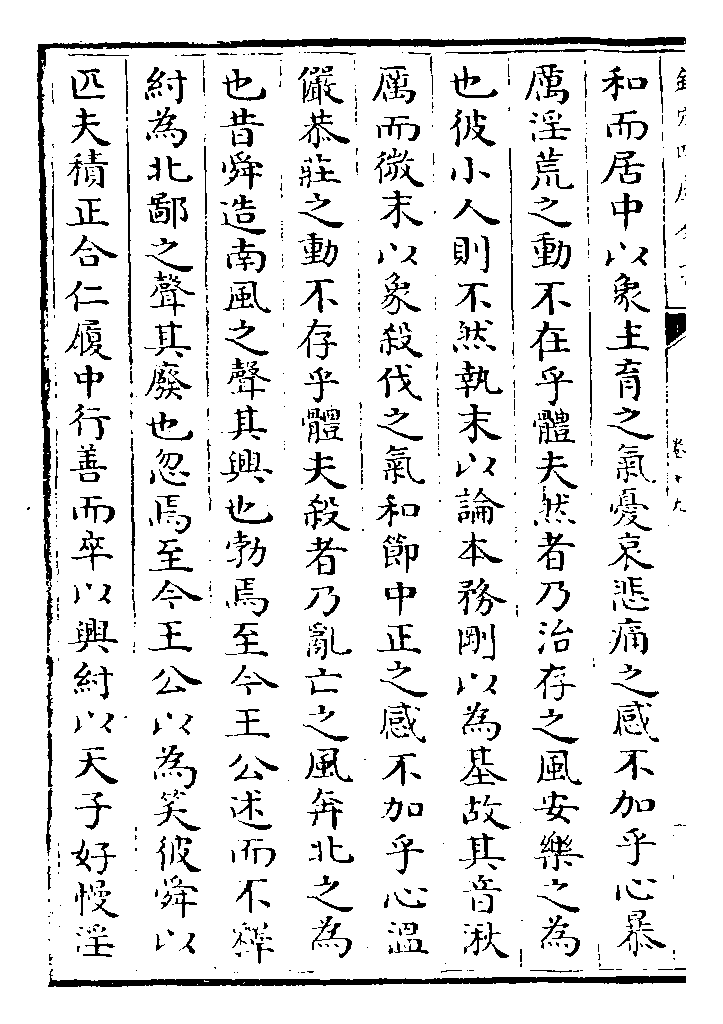 和而居中以象生育之氣憂哀悲痛之感不加乎心暴
厲淫荒之動不在乎體夫然者乃治存之風安樂之為
也彼小人則不然執末以論本務剛以為基故其音湫
厲而微末以象殺伐之氣和節中正之感不加乎心溫
儼恭莊之動不存乎體夫殺者乃亂亡之風奔北之為
也昔舜造南風之聲其興也勃焉至今王公述而不釋
紂為北鄙之聲其廢也忽焉至今王公以為笑彼舜以
匹夫積正合仁履中行善而卒以興紂以天子好慢淫
卷十九